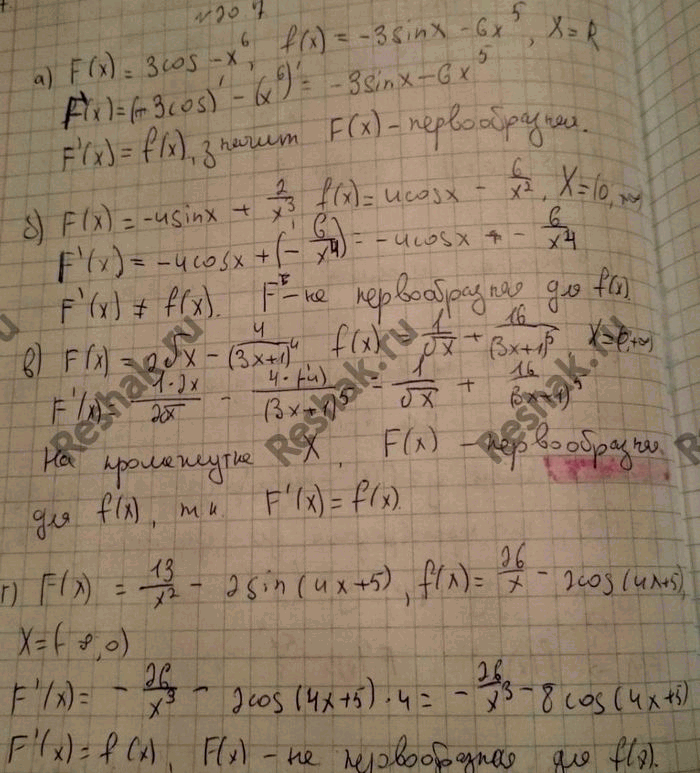 №20.7
а) F(x) = 3cos - x⁶, f(x) = -3sinx - 6x⁵, X=R
F'(x) = (+3cos)' - (x⁶)' = -3sinx - 6x⁵
F'(x) = f(x), значит F(x) - первообразная.
б) F(x) = -4sinx + 2/x³ f(x) = 4cosx - 6/x², X=(0,+∞)
F'(x) = -4cosx + (-6/x⁴)' = -4cosx - 6/x⁴
F'(x) ≠ f(x). F - не первообразная для f(x).
в) F(x) = 2√x - 4/(3x+1)⁴ f(x) = 1/√x + 16/(3x+1)⁵ X=(0,+∞)
F'(x) = 1·2x/2x - 4·(-4)/(3x+1)⁵ = 1/√x + 16/(3x+1)⁵
На промежутке X, F(x) - первообразная
для f(x), т.к. F'(x) = f(x).
г) F(x) = 13/x² - 2sin(4x+5), f(x) = 26/x - 2cos(4x+5),
X=(-∞,0)
F'(x) = -26/x³ - 2cos(4x+5)·4 = -26/x³ - 8cos(4x+5)
F'(x) = f(x), F(x) - не первообразная для f(x).
Reshak.ru
Reshak.ru
Reshak.ru